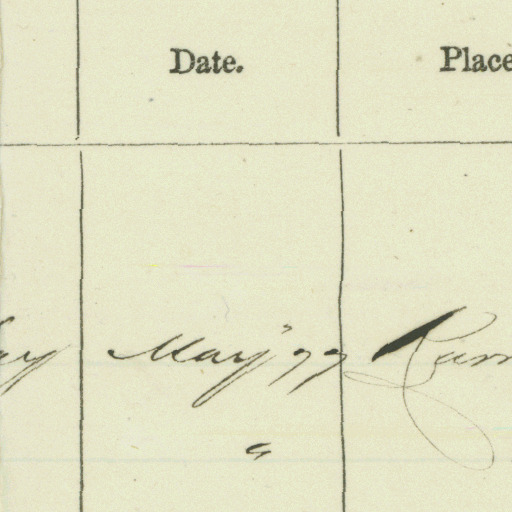 Date. Place
ay May "77 Ram
"